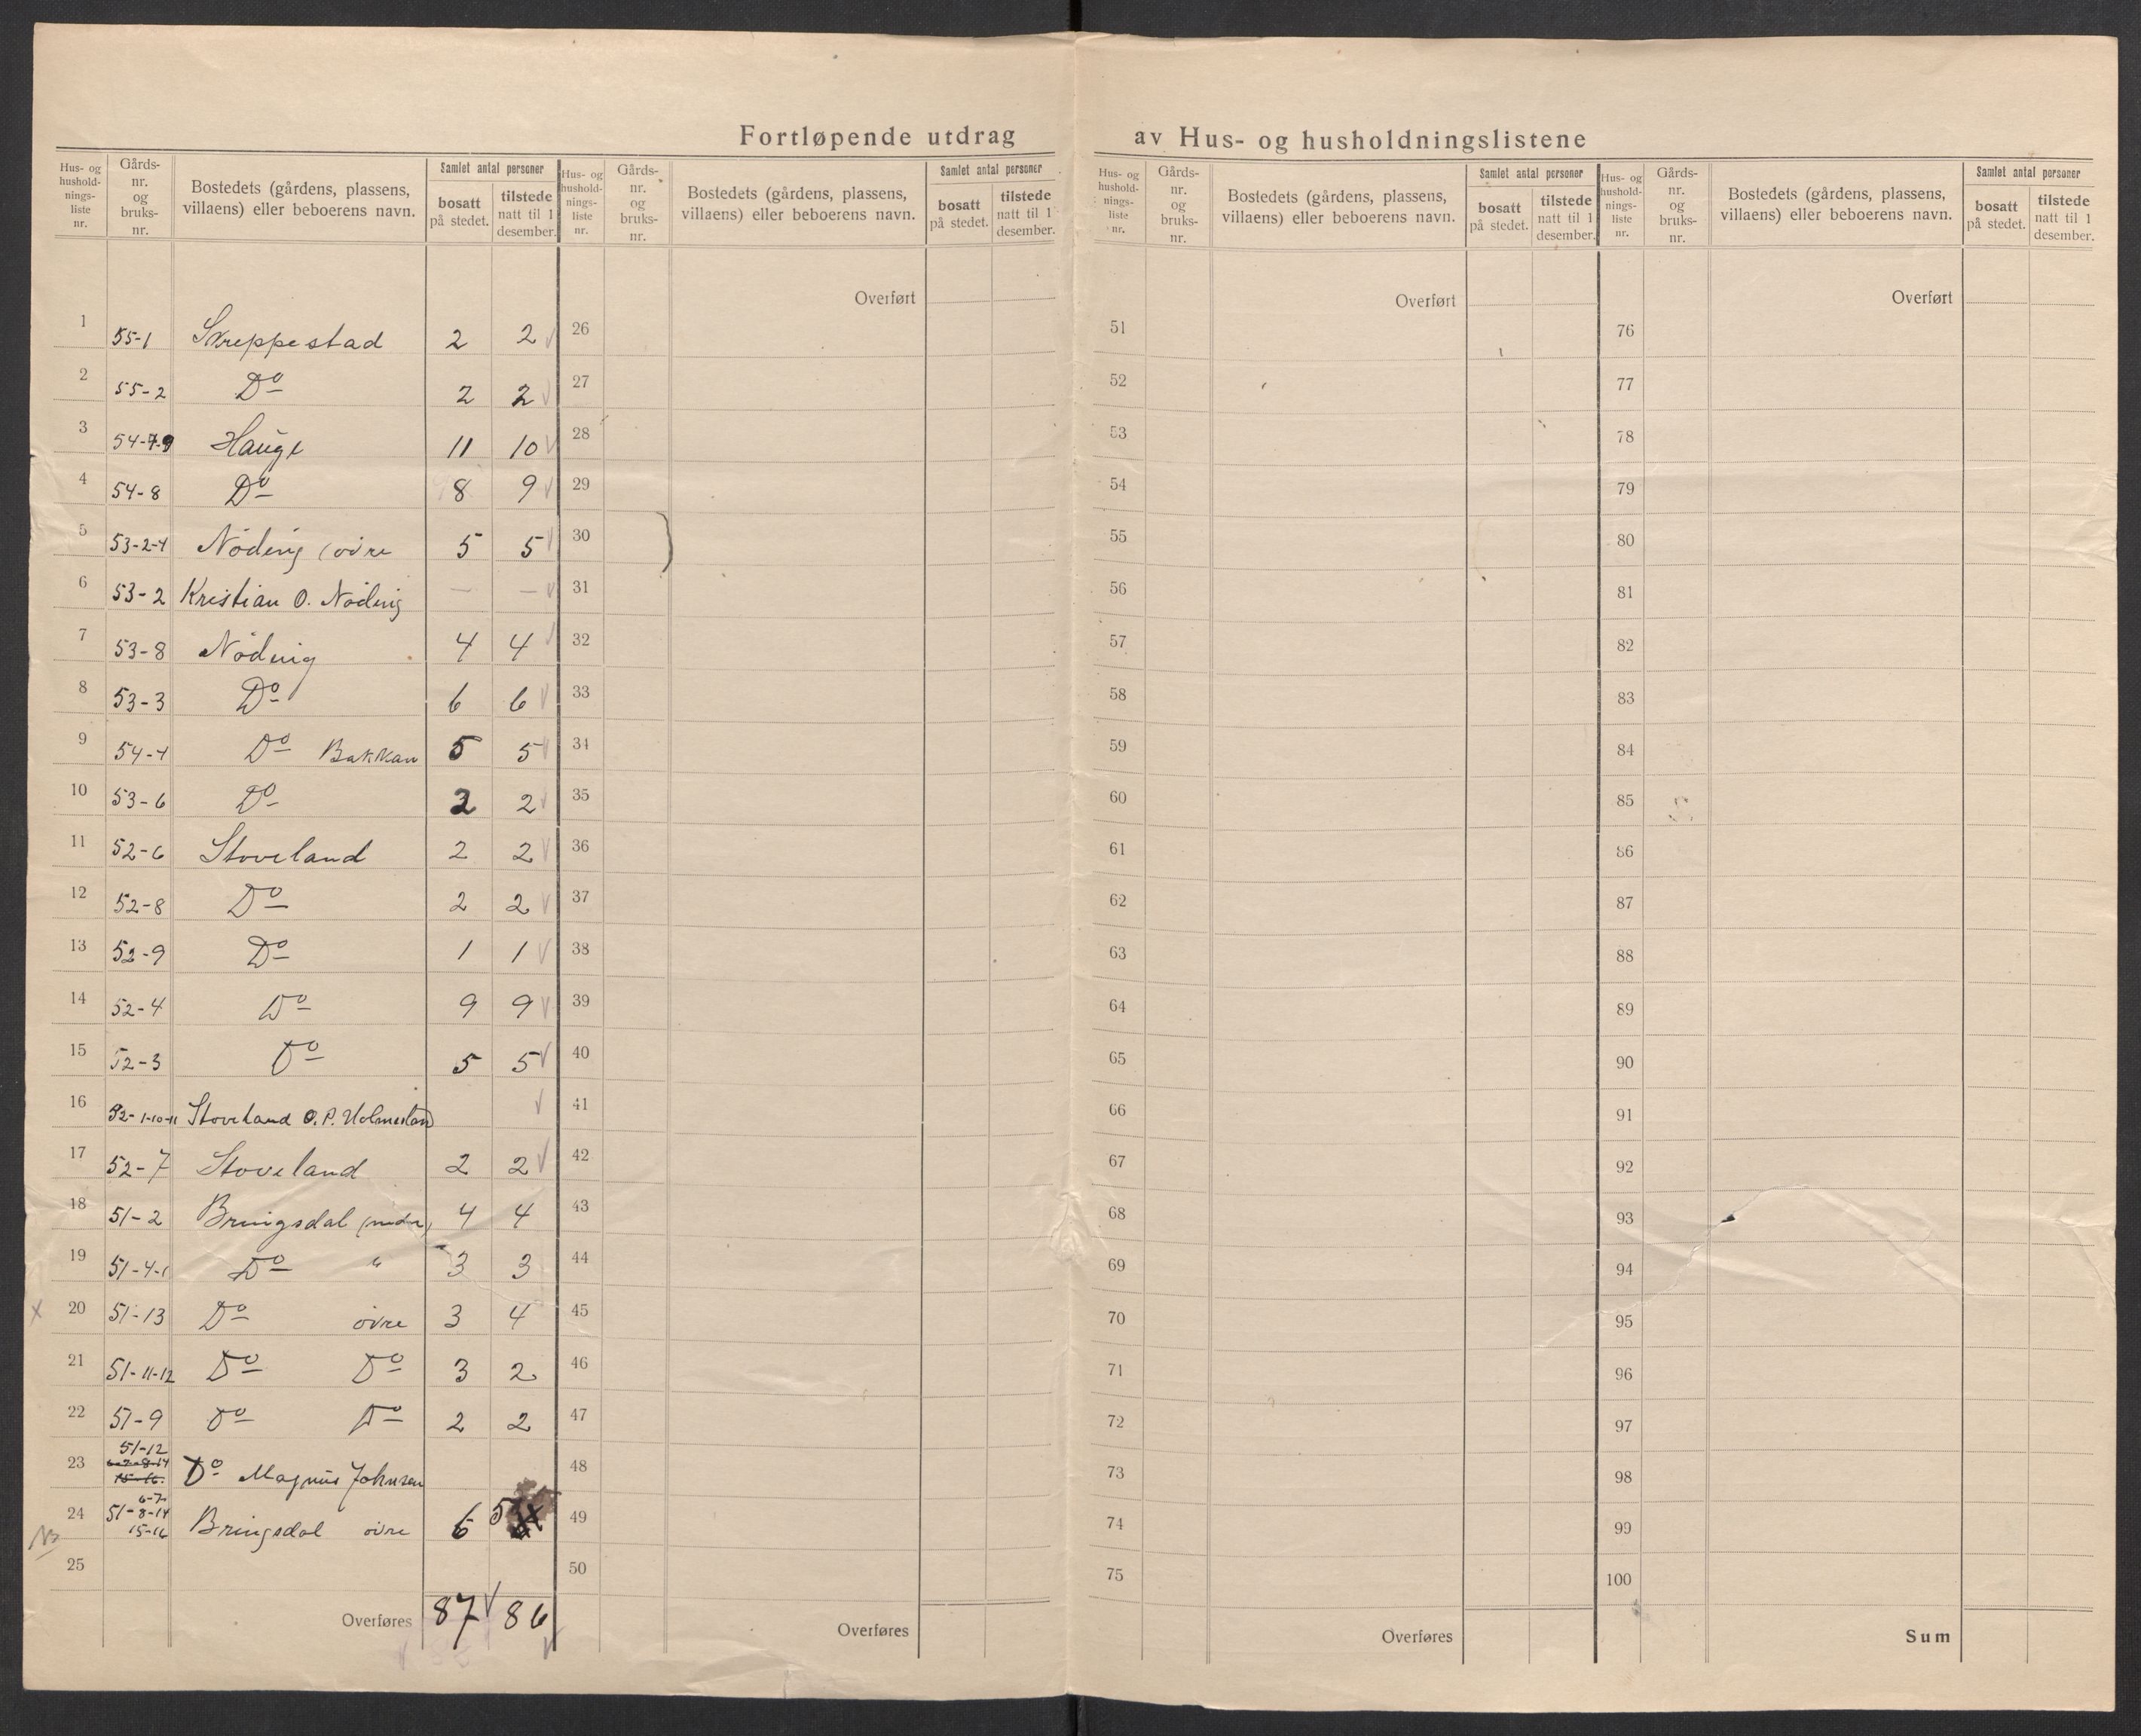 Fortløpende utdrag av Hus- og husholdningslistene
Hus- og hushold- nings- liste nr. | Gårds- nr. og bruks- nr. | Bostedets (gårdens, plassens, villaens) eller beboerens navn. | Samlet antal personer | bosatt på stedet. | tilstede natt til 1 desember.
1 55-1 Skreppestad 2 2 √
2 55-2 Do 2 2 √
3 54-7-9 Hauge 11 10 √
4 54-8 Do 8 9 √
5 53-2-4 Nöding (övre 5 5 √
6 53-2 Kristian O. Nöding — — √
7 53-8 Nöding 4 4 √
8 53-3 Do 6 6 √
9 54-4 Do Bakkan 5 5 √
10 53-6 Do 2 2 √
11 52-6 Stoveland 2 2 √
12 52-8 Do 2 2 √
13 52-9 Do 1 1 √
14 52-4 Do 9 9 √
15 52-3 Do 5 5 √
16 52-1-10-11 Stoveland O. P. Holmesland √
17 52-7 Stoveland 2 2 √
18 51-2 Bringsdal (nedre) 4 4
19 51-4-1 Do " 3 3
x 20 51-13 Do övre 3 4
21 51-11-12 Do Do 3 2
22 51-9 Do Do 2 2
51-12
23 6-7-8-14 15-16. Do Magnus Johnsen
6-7-
24 51-8-14 15-16 Bringsdal övre 6 5
25
Overføres 87 √ 86
Hus- og hushold- nings- liste nr. | Gårds- nr. og bruks- nr. | Bostedets (gårdens, plassens, villaens) eller beboerens navn. | Samlet antal personer | bosatt på stedet. | tilstede natt til 1 desember.
Overført
26
27
28
29
30
31
32
33
34
35
36
37
38
39
40
41
42
43
44
45
46
47
48
49
50
Overføres
Hus- og hushold- nings- liste nr. | Gårds- nr. og bruks- nr. | Bostedets (gårdens, plassens, villaens) eller beboerens navn. | Samlet antal personer | bosatt på stedet. | tilstede natt til 1 desember.
Overført
51
52
53
54
55
56
57
58
59
60
61
62
63
64
65
66
67
68
69
70
71
72
73
74
75
Overføres
Hus- og hushold- nings- liste nr. | Gårds- nr. og bruks- nr. | Bostedets (gårdens, plassens, villaens) eller beboerens navn. | Samlet antal personer | bosatt på stedet. | tilstede natt til 1 desember.
Overført
76
77
78
79
80
81
82
83
84
85
86
87
88
89
90
91
92
93
94
95
96
97
98
99
100
Sum